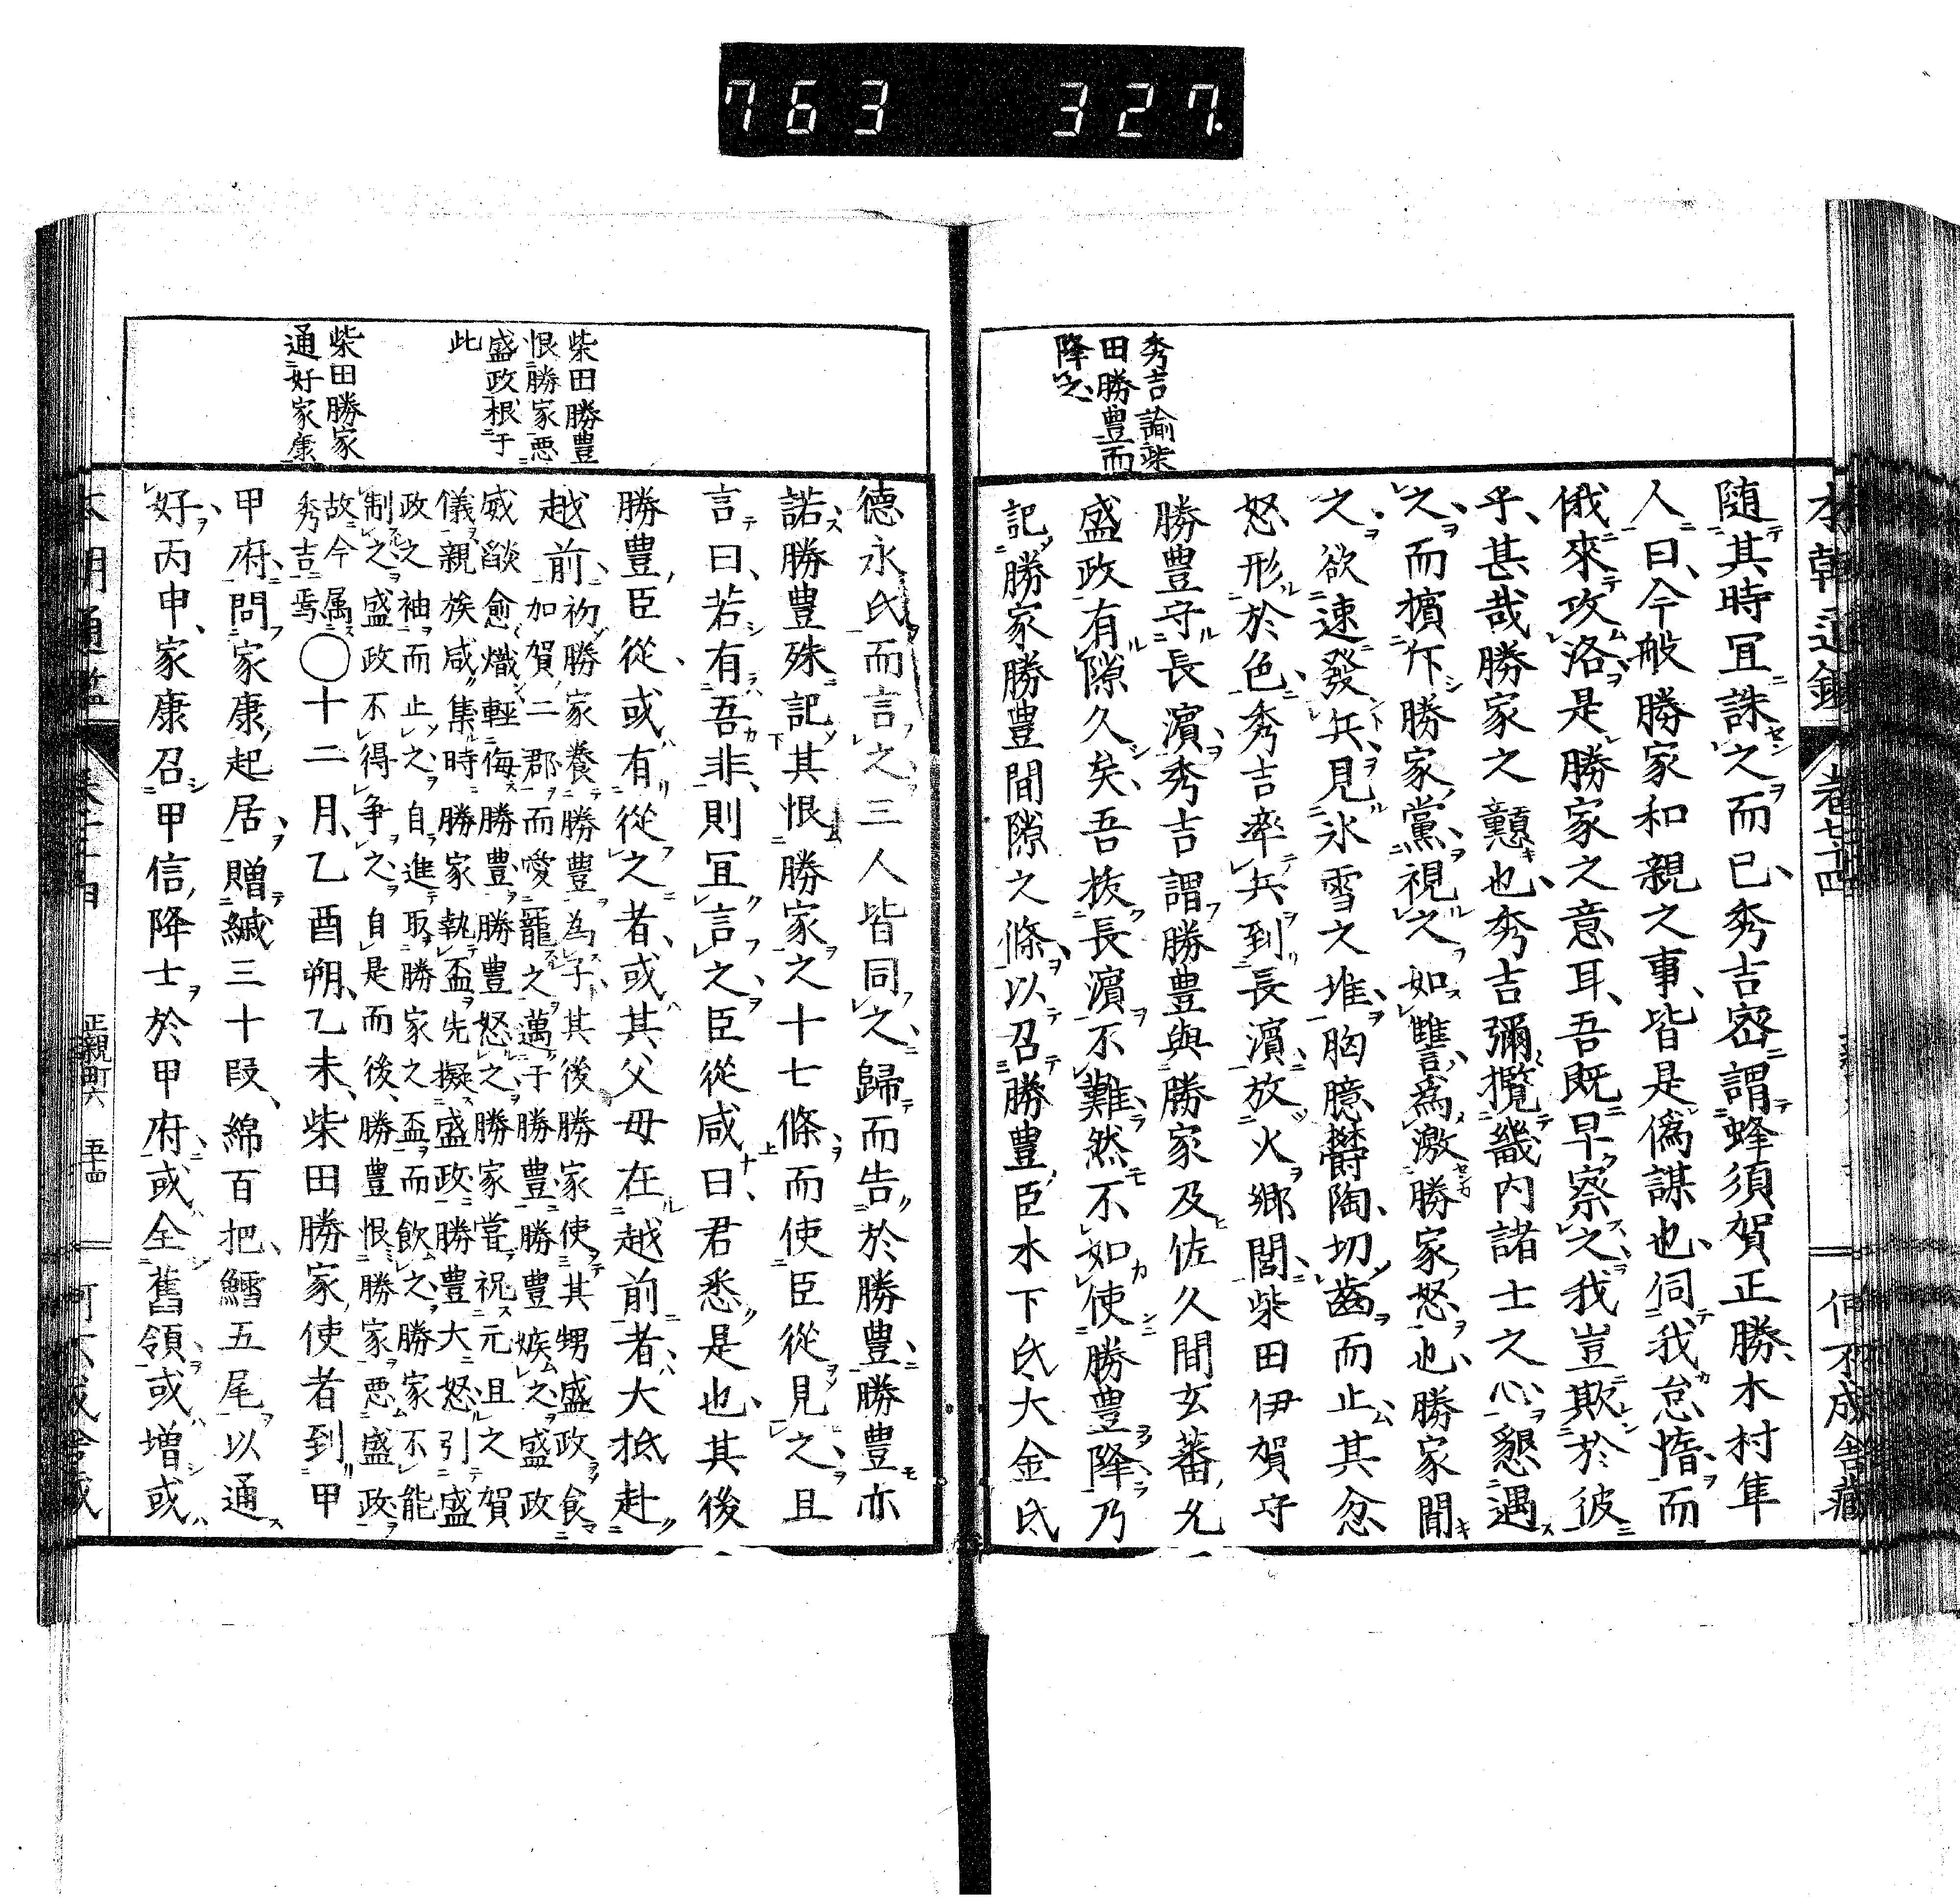 763 327.
秀吉諭柴
田勝豊而
降之
随其時冝誅之而已秀吉密謂蜂須賀正勝木村隼
人曰今般勝家和親之事皆是偽謀也伺我怠惰而
俄來攻洛是勝家之意耳吾既早察之我豈欺於彼
乎甚哉勝家之戇也秀吉彌攬畿内諸士之心懇遇
之而擯斥勝家黨視之如讎爲激勝家怒也勝家聞
之欲速發兵見氷雪之堆胸臆欝陶切齒而止其忿
怒形於色秀吉率兵到長濵放火郷閭柴田伊賀守
勝豊守長濵秀吉謂勝豊與勝家及佐久間玄蕃允
盛政有隙久矣吾抜長濵不難然不如使勝豊降乃
記勝家勝豊間隙之條以召勝豊臣木下氏大金氏
柴田勝豊
恨勝家悪
盛政根于
此
柴田勝家
通好家康
德永氏而言之三人皆同之歸而告於勝豊勝豊亦
諾勝豊殊記其恨勝家之十七條而使臣從見之且
言曰若有吾非則冝言之臣從咸曰君悉是也其後
勝豊臣從或有從之者或其父母在越前者大抵赴
越前初勝家養勝豊為子其後勝家使其甥盛政食
加賀二郡而愛寵之邁于勝豊勝豊嫉之盛政
威燄愈熾輕侮勝豊勝豊怒之勝家嘗祝元且之賀
儀親族咸集時勝家執盃先擬盛政勝豊大怒引盛
政之袖而止之自進取勝家之盃而飲之勝家不能
制之盛政不得争之自是而後勝豊恨勝家悪盛政
故今属
秀吉焉
○十二月乙酉朔乙未柴田勝家使者到甲
甲府問家康起居贈緘三十段綿百把鱈五尾以通
好丙申家康召甲信降士於甲府或全舊領或増或
正親町六 五十四